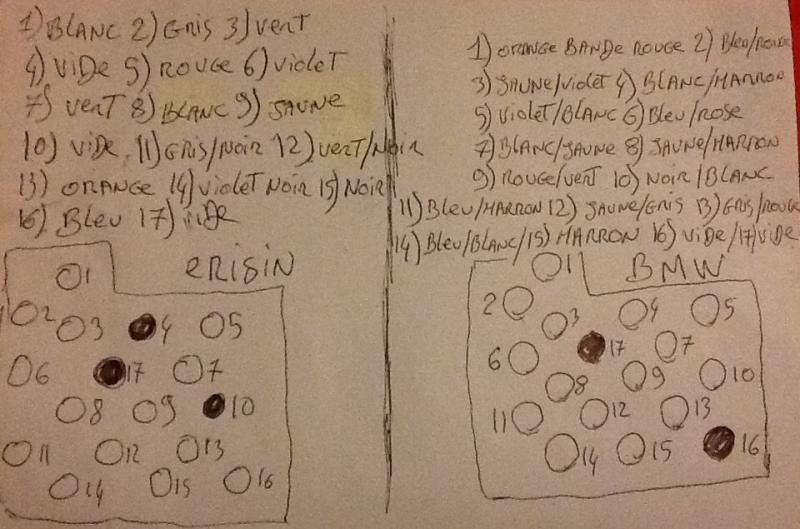 1) BLANC 2) GRIS 3) VERT
4) VIDE 5) ROUGE 6) VIOLET
7) VERT 8) BLANC 9) JAUNE
10) VIDE 11) GRIS/NOIR 12) VERT/NOIR
13) ORANGE 14) VIOLET NOIR 15) NOIR
16) BLEU 17) VIDE
ERISIN
1
2 3 4 5
6 17 7
8 9 10
11 12 13
14 15 16
1) ORANGE BANDE ROUGE 2) BLEU/ROUGE
3) JAUNE/VIOLET 4) BLANC/MARRON
5) VIOLET/BLANC 6) BLEU/ROSE
7) BLANC/JAUNE 8) JAUNE/MARRON
9) ROUGE/VERT 10) NOIR/BLANC
11) BLEU/MARRON 12) JAUNE/GRIS 13) GRIS/ROUGE
14) BLEU/BLANC/15) MARRON 16) VIDE/17) VIDE
1 BMW
2 3 4 5
6 17 7
8 9 10
11 12 13
14 15 16